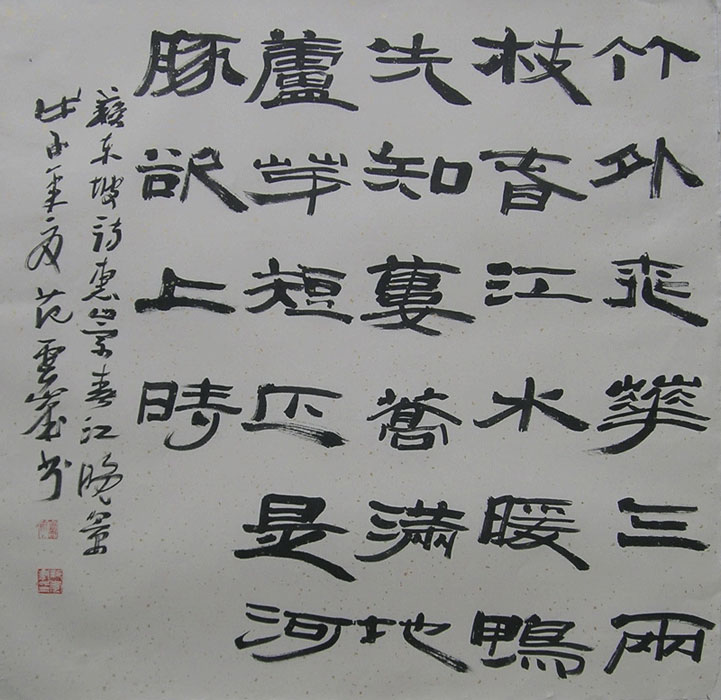 竹外桃華三兩
枝春江水暖鴨
先知蔞蒿滿地
蘆芽短正是河
豚欲上時
蘇東坡詩惠崇春江晚景
年夏范雲峯書